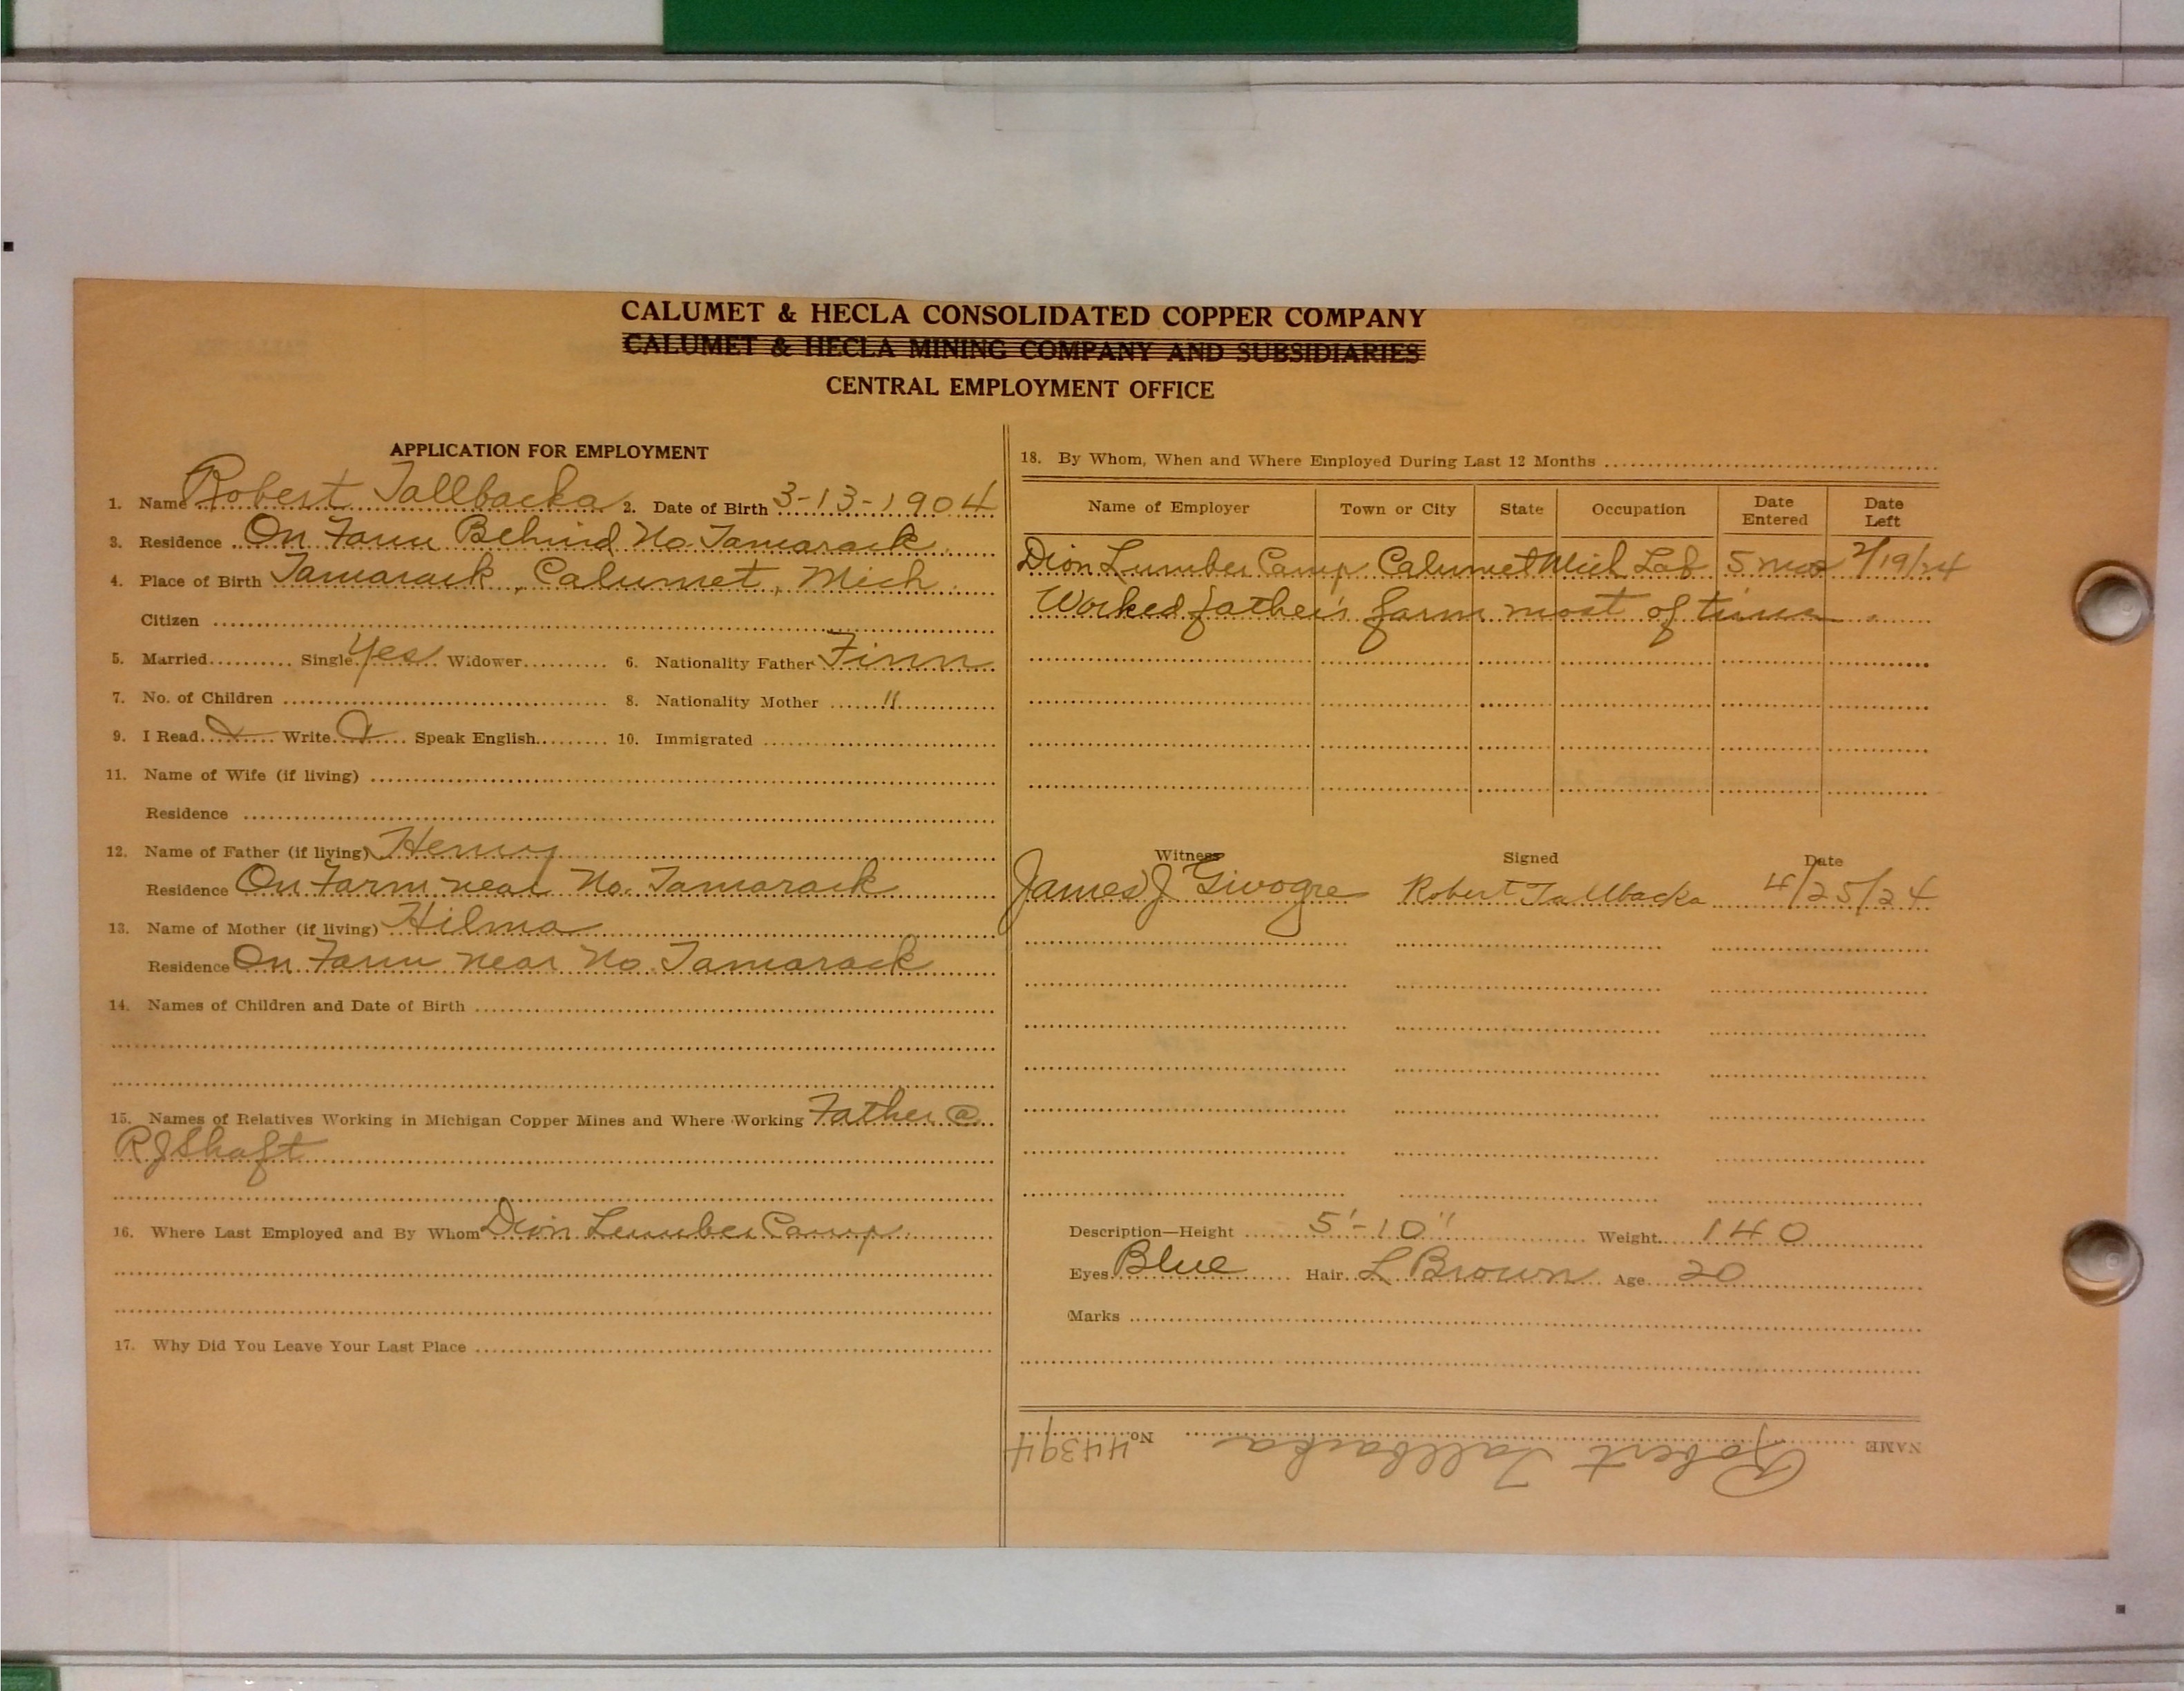 CALUMET & HECLA CONSOLIDATED COPPER COMPANY
CALUMET & HECLA MINING COMPANY AND SUBSIDIARIES
CENTRAL EMPLOYMENT OFFICE
APPLICATION FOR EMPLOYMENT
1. Name Robert Tallbacka 2. Date of Birth 3-13-1904
3. Residence On Farm Behind No. Tamarack
4. Place of Birth Tamarack, Calumet, Mich.
Citizen
5. Married Single Yes Widower 6. Nationality Father Finn
7. No. of Children 8. Nationality Mother "
9. I Read Write Speak English 10. Immigrated
11. Name of Wife (if living)
Residence
12. Name of Father (if living) Henry
Residence On Farm near No. Tamarack
13. Name of Mother (if living) Hilma
Residence On Farm near No. Tamarack
14. Names of Children and Date of Birth
15. Names of Relatives Working in Michigan Copper Mines and Where Working Father @
RJ Shaft
16. Where Last Employed and By Whom Dion Lumber Camp.
17. Why Did You Leave Your Last Place
18. By Whom, When and Where Employed During Last 12 Months
Name of Employer Town or City State Occupation Date Entered Date Left
Dion Lumber Camp Calumet Mich Lab 5 mos 2/19/24
Worked father's farm most of time
Witness Signed Date
James J Givogre Robert Tallbacka 4/25/24
Description—Height 5'-10" Weight 140
Eyes Blue Hair L Brown Age 20
Marks
NAME Robert Tallbacka No. 44394